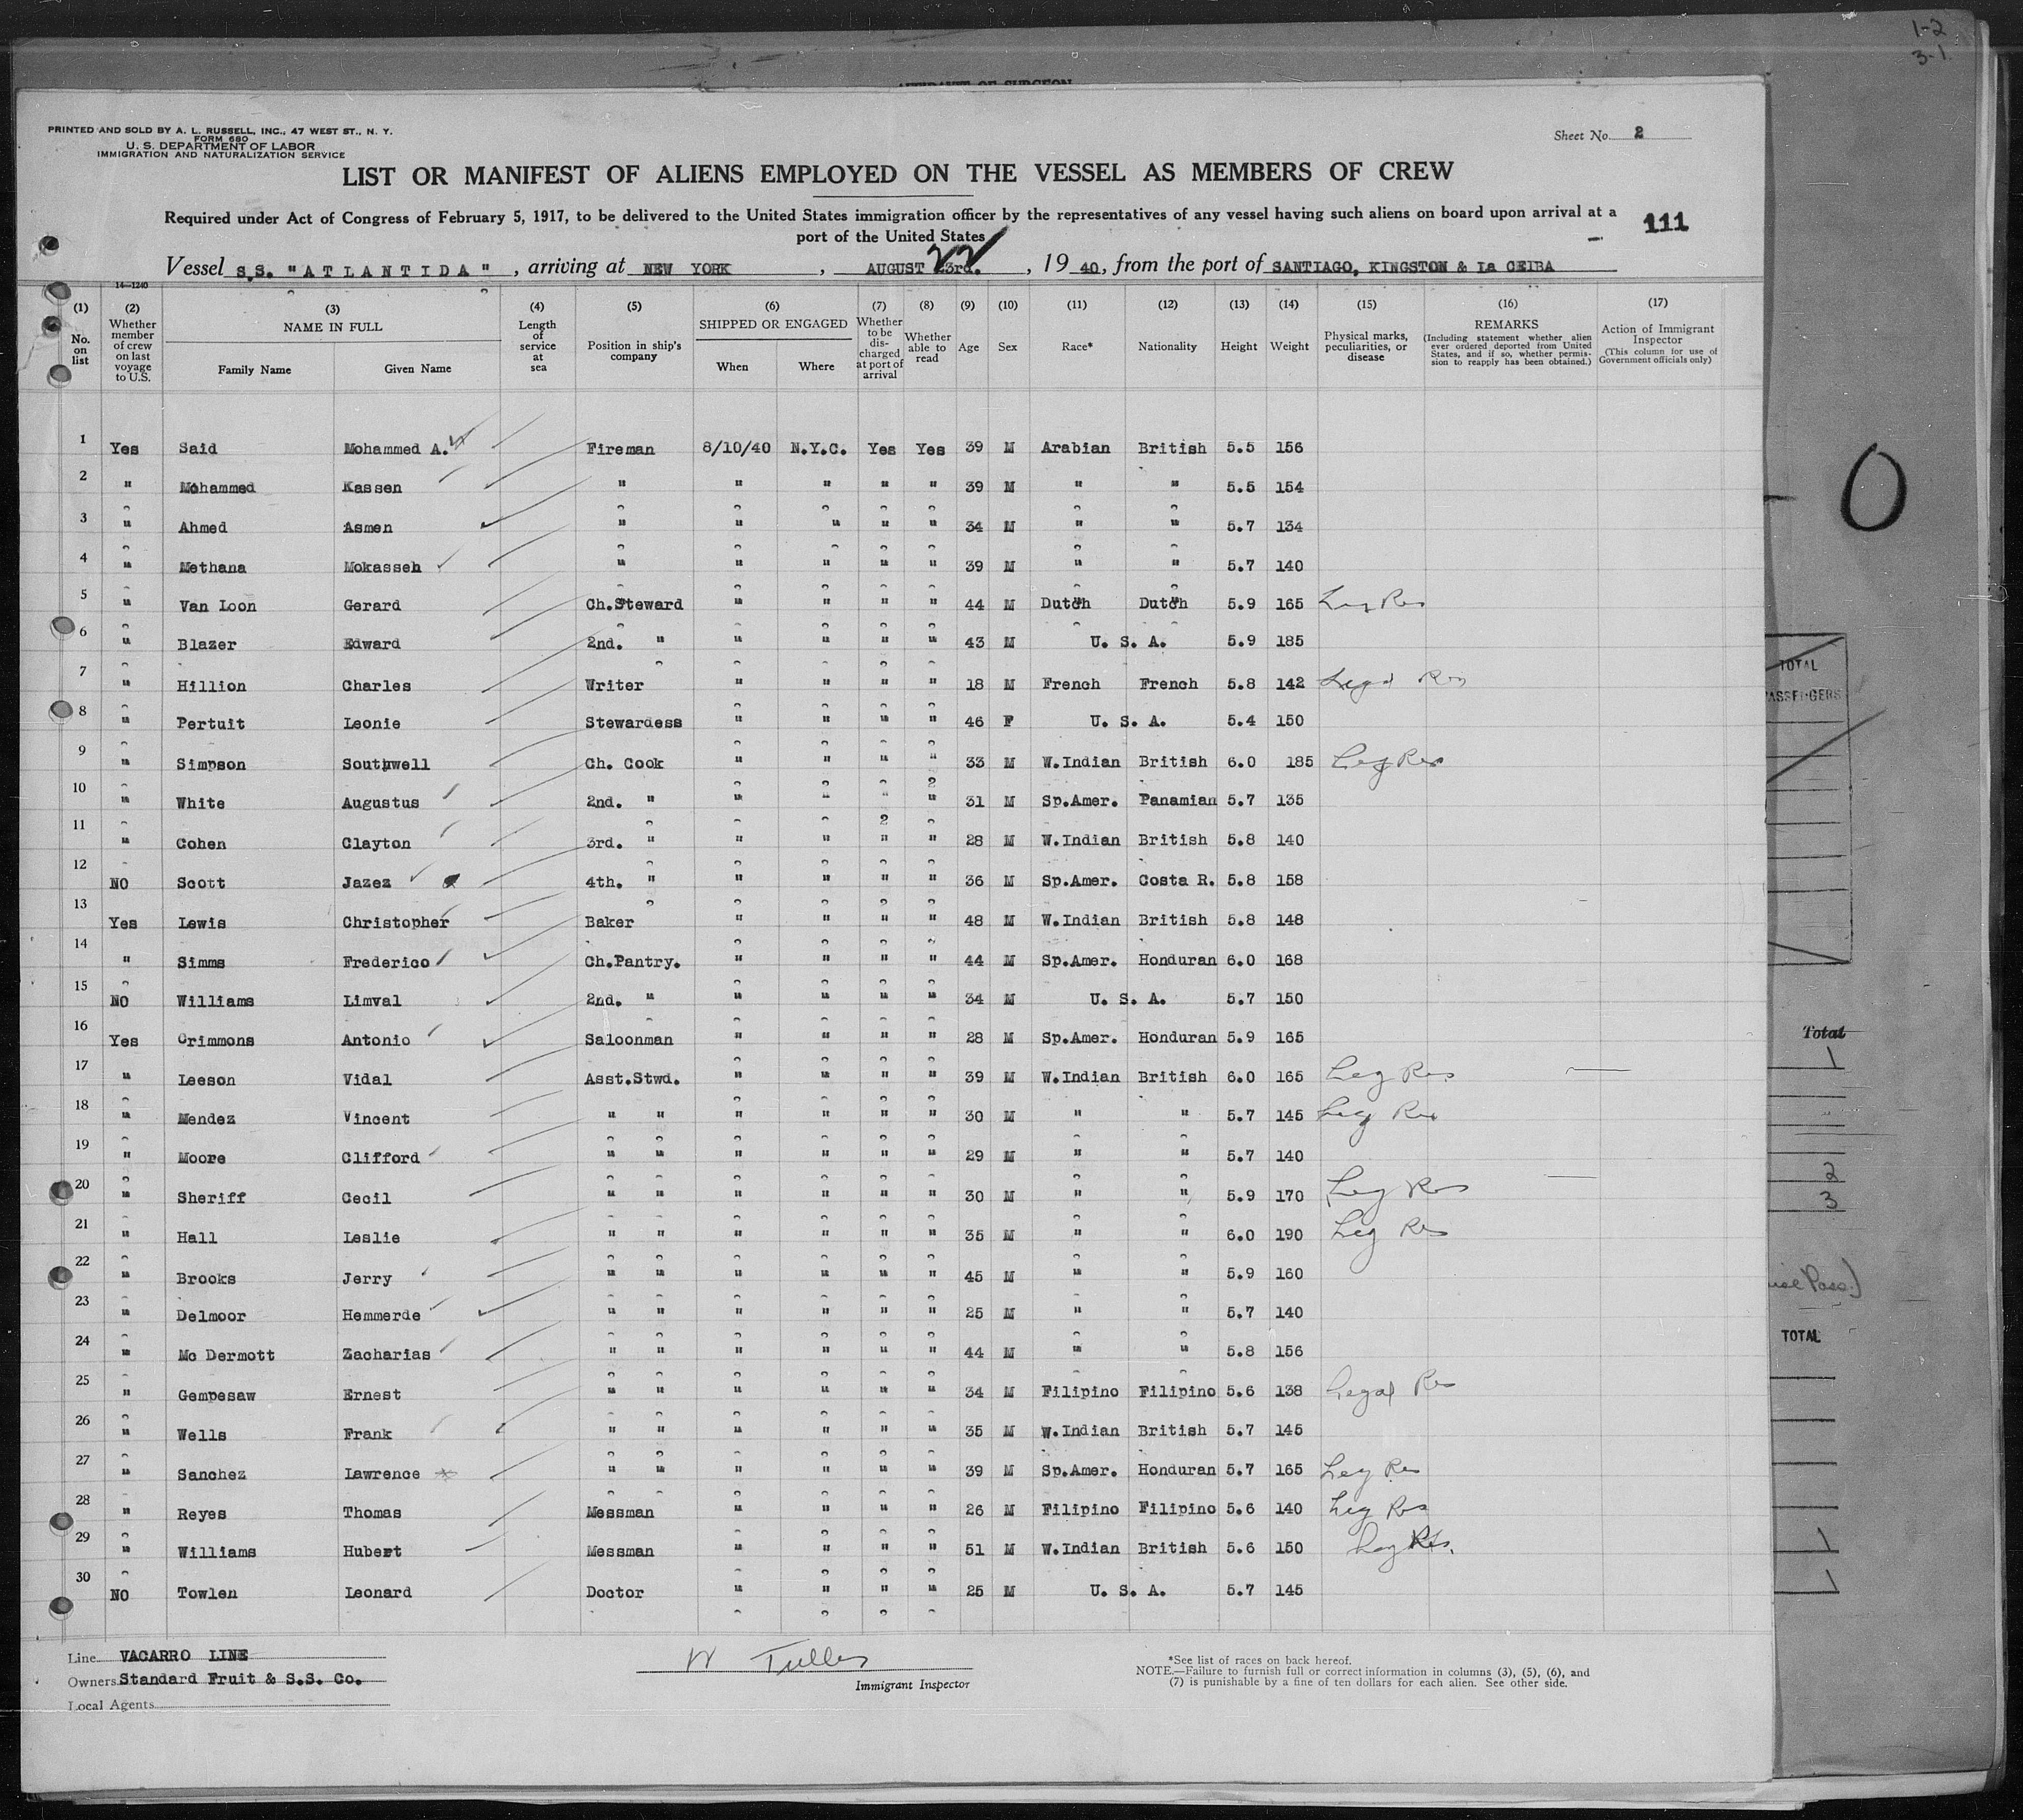 1-2
3-1
AFFIDAVIT OF SURGEON
PRINTED AND SOLD BY A. L. RUSSELL, INC., 47 WEST ST., N. Y.
FORM 680
U. S. DEPARTMENT OF LABOR
IMMIGRATION AND NATURALIZATION SERVICE
Sheet No. 2
LIST OR MANIFEST OF ALIENS EMPLOYED ON THE VESSEL AS MEMBERS OF CREW
Required under Act of Congress of February 5, 1917, to be delivered to the United States immigration officer by the representatives of any vessel having such aliens on board upon arrival at a
port of the United States
111
22
Vessel S.S. "ATLANTIDA", arriving at NEW YORK, AUGUST 23rd., 1940, from the port of SANTIAGO, KINGSTON & La CEIBA
14—1240
(1) No. on list (2) Whether member of crew on last voyage to U.S. (3) NAME IN FULL Family Name Given Name (4) Length of service at sea (5) Position in ship's company (6) SHIPPED OR ENGAGED When Where (7) Whether to be discharged at port of arrival (8) Whether able to read (9) Age (10) Sex (11) Race* (12) Nationality (13) Height (14) Weight (15) Physical marks, peculiarities, or disease (16) REMARKS (Including statement whether alien ever ordered deported from United States, and if so, whether permission to reapply has been obtained.) (17) Action of Immigrant Inspector (This column for use of Government officials only)
1 Yes Said Mohammed A. Fireman 8/10/40 N.Y.C. Yes Yes 39 M Arabian British 5.5 156
2 " Mohammed Kassen " " " " " 39 M " " 5.5 154
3 " Ahmed Asmen " " " " " 34 M " " 5.7 134
4 " Methana Mokasseh " " " " " 39 M " " 5.7 140
5 " Van Loon Gerard Ch.Steward " " " " 44 M Dutch Dutch 5.9 165 Leg Res
6 " Blazer Edward 2nd. " " " " " 43 M U. S. A. 5.9 185
7 " Hillion Charles Writer " " " " 18 M French French 5.8 142 Legal Res
8 " Pertuit Leonie Stewardess " " " " 46 F U. S. A. 5.4 150
9 " Simpson Southwell Ch. Cook " " " " 33 M W.Indian British 6.0 185 Leg Res
10 " White Augustus 2nd. " " " " " 31 M Sp.Amer. Panamian 5.7 135
11 " Cohen Clayton 3rd. " " " " " 28 M W.Indian British 5.8 140
12 NO Scott Jazez 4th. " " " " " 36 M Sp.Amer. Costa R. 5.8 158
13 Yes Lewis Christopher Baker " " " " 48 M W.Indian British 5.8 148
14 " Simms Frederico Ch.Pantry. " " " " 44 M Sp.Amer. Honduran 6.0 168
15 NO Williams Limval 2nd. " " " " " 34 M U. S. A. 5.7 150
16 Yes Crimmons Antonio Saloonman " " " " 28 M Sp.Amer. Honduran 5.9 165
17 " Leeson Vidal Asst.Stwd. " " " " 39 M W.Indian British 6.0 165 Leg Res
18 " Mendez Vincent " " " " " " 30 M " " 5.7 145 Leg Res
19 " Moore Clifford " " " " " " 29 M " " 5.7 140
20 " Sheriff Cecil " " " " " " 30 M " " 5.9 170 Leg Res
21 " Hall Leslie " " " " " " 35 M " " 6.0 190 Leg Res
22 " Brooks Jerry " " " " " " 45 M " " 5.9 160
23 " Delmoor Hemmerde " " " " " " 25 M " " 5.7 140
24 " Mc Dermott Zacharias " " " " " " 44 M " " 5.8 156
25 " Gempesaw Ernest " " " " " " 34 M Filipino Filipino 5.6 138 Legal Res
26 " Wells Frank " " " " " " 35 M W.Indian British 5.7 145
27 " Sanchez Lawrence " " " " " " 39 M Sp.Amer. Honduran 5.7 165 Leg Res
28 " Reyes Thomas Messman " " " " 26 M Filipino Filipino 5.6 140 Leg Res
29 " Williams Hubert Messman " " " " 51 M W.Indian British 5.6 150 Leg Res.
30 NO Towlen Leonard Doctor " " " " 25 M U. S. A. 5.7 145
Line VACARRO LINE
Owners Standard Fruit & S.S. Co.
Local Agents
W Tulles
Immigrant Inspector
*See list of races on back hereof.
NOTE.—Failure to furnish full or correct information in columns (3), (5), (6), and
(7) is punishable by a fine of ten dollars for each alien. See other side.
0
TOTAL
PASSENGERS
Total
1
2
3
Pass.)
TOTAL
1
1